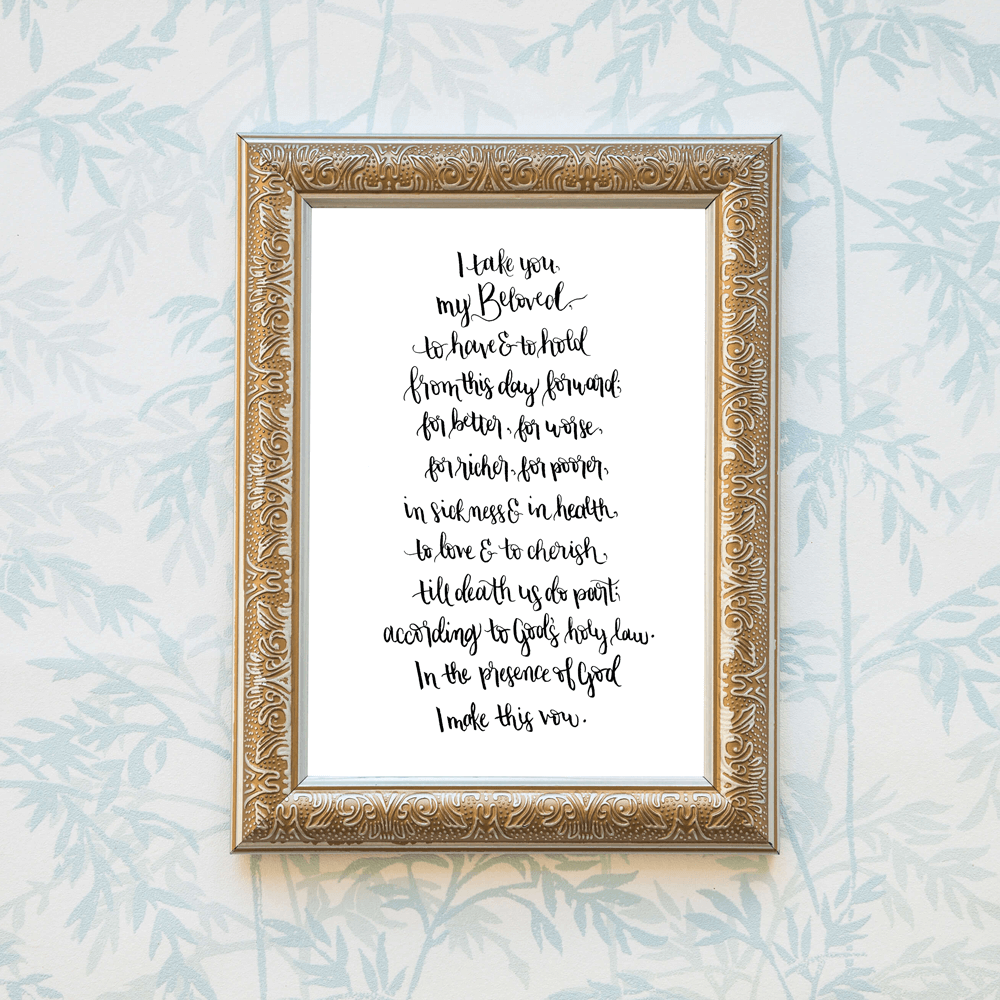 I take you,
my Beloved,
to have & to hold
from this day forward;
for better, for worse,
for richer, for poorer,
in sickness & in health,
to love & to cherish,
till death us do part;
according to God's holy law.
In the presence of God
I make this vow.